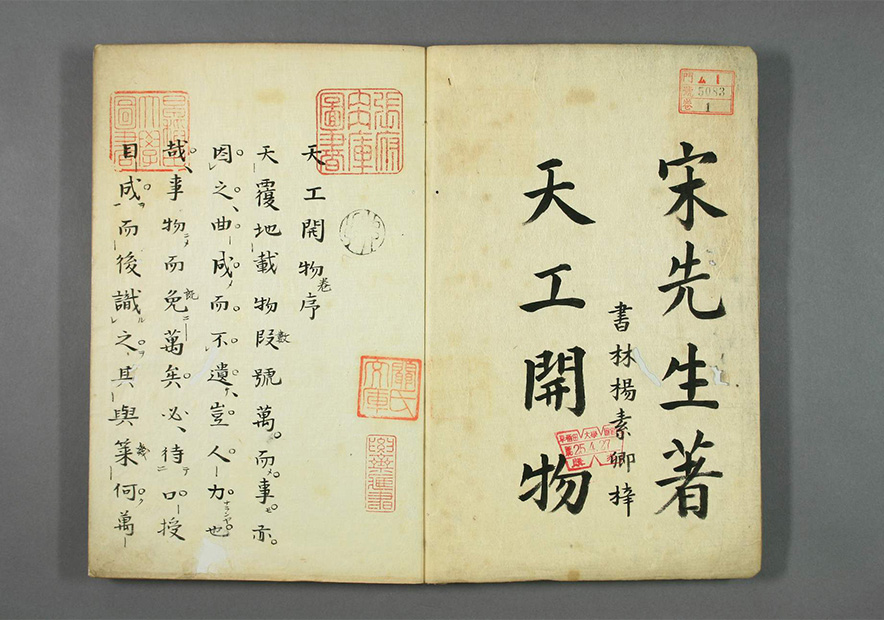 ム1
5083
1
宋先生著
書林楊素卿梓
天工開物
25.4.27
天工開物卷序
天覆地載物段號萬而事亦
因之曲成而不遺豈人力也
哉事物而免萬矣必待口授
目成而後識之其與
何萬